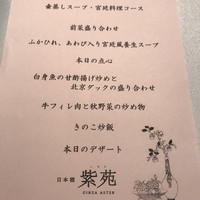 壷蒸しスープ・宮廷料理コース
前菜盛り合わせ
ふかひれ、あわび入り宮廷風養生スープ
本日の点心
白身魚の甘酢揚げ炒めと
北京ダックの盛り合わせ
牛フィレ肉と秋野菜の炒め物
きのこ炒飯
本日のデザート
日本橋 紫苑
GINZA ASTER